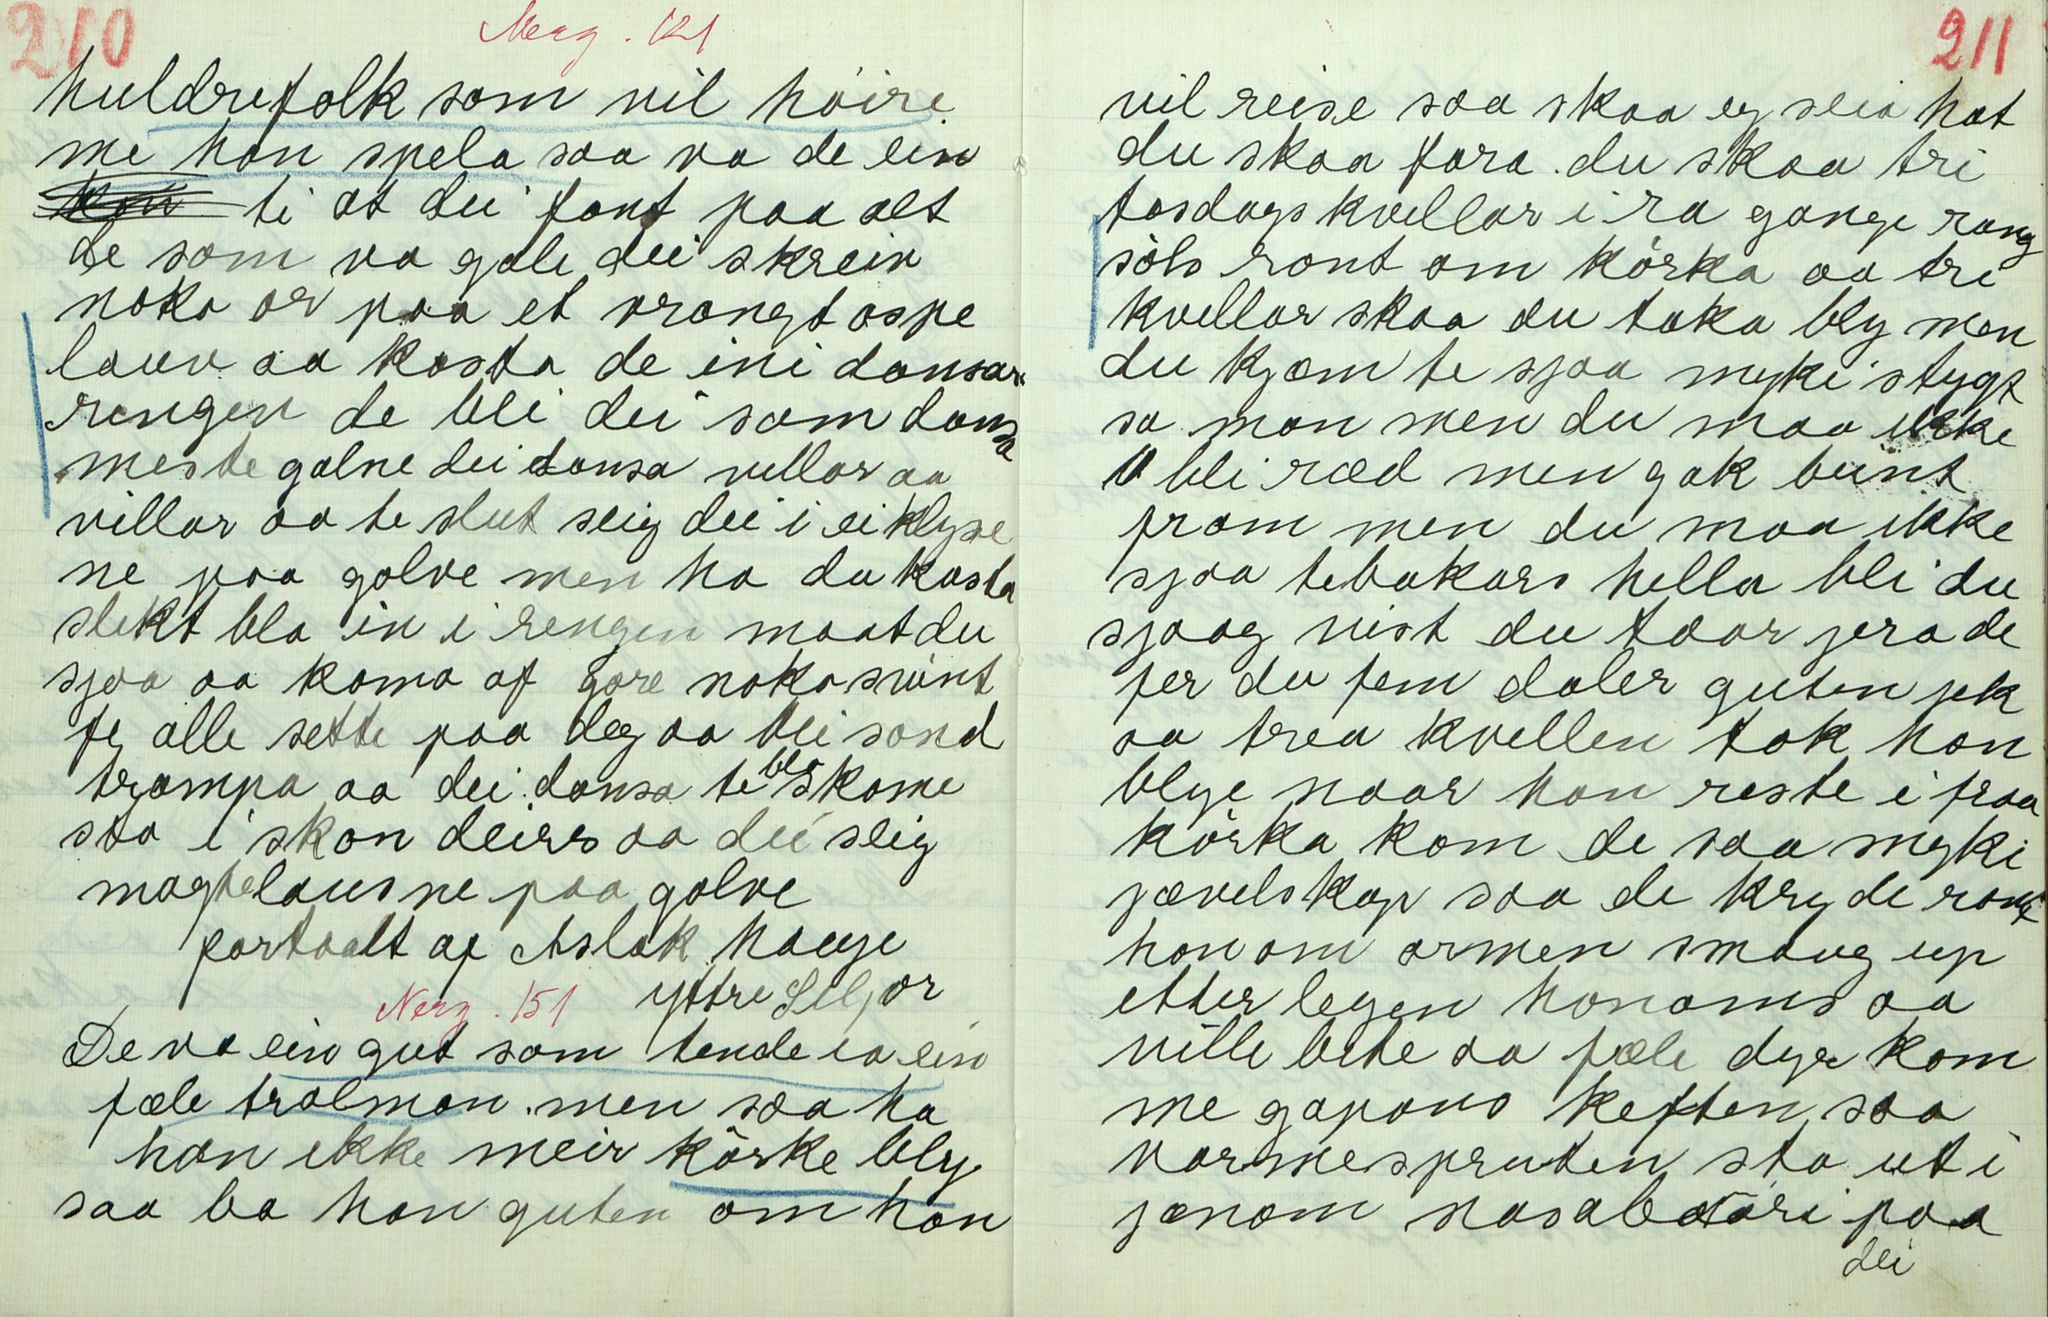 210
Nerg. 121
huldrefolk som vil höire
me han spela saa va de ein
ti at dei fant paa alt
de som va gale dei skreiv
noka or paa et vrangt ospe
lauv aa kasta de ini dansar
rengen de blei dei som dansa
meste galne dei dansa villar aa
villar aa te slut seig dei i ei klyse
ne paa golve men ha du kasta
slikt bla in i rengen maat du
sjaa aa koma af gåre noka svint
fy alle sette paa deg aa blei sond
trampa aa dei dansa te blo skome
sto i skon deires aa dei seig
magtelaus ne paa golve
fortaalt af Aslak hauge
yttre Seljor
Nerg. 151
De va ein gut som tende ia ein
fæle trolman. men saa ha
han ikke meir körke bly
saa ba han guten om han
211
vil reise saa skaa eg seia hot
du skaa fara. du skaa tri
tosdagskvellar i ra gange rang
söls ront om körka aa tri
kvellar skaa du taka bly men
du kjæm te sjaa myki stygt
sa man men du maa ikke
bli ræd men gak beint
fram men du maa ikke
sjaa tebakars hella bli du
sjaag vist du taar jera de
fer du fem daler guten jek
aa trea kvellen tok han
blye naar han reste i fraa
körka kom de saa myki
jævelskap saa de kryde ront
han om ormen smaug up
etter legen honoms aa
ville bite aa fæle dyr kom
me gapans keften saa
varmespruten sto ut i
jænom nasabaari paa
dei